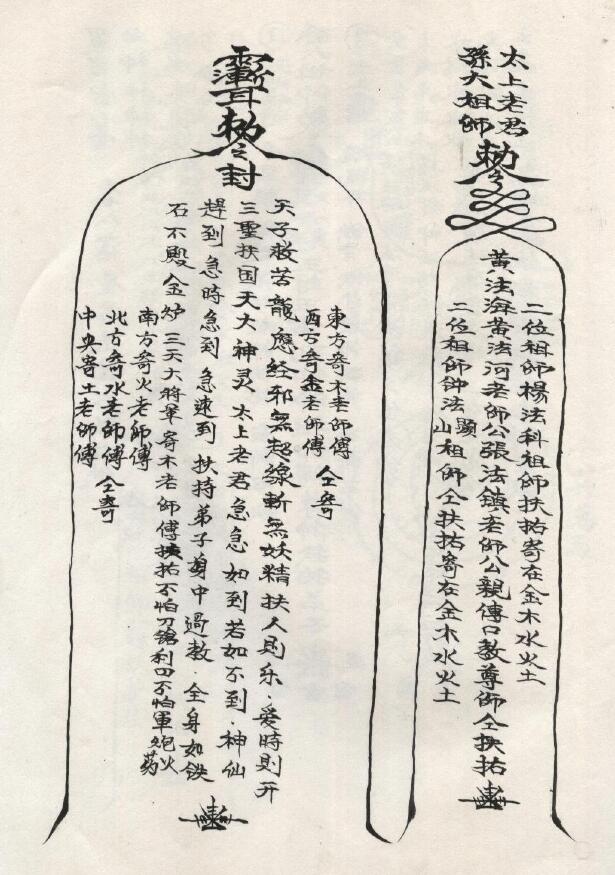 太上老君
孫大祖師
勅令
二位祖師楊法科祖師扶祐寄在金木水火土
黃法海黃法河老師公張法鎮老師公親傳口教尊師仝扶祐
二位祖師鈡法頭山祖師仝扶祐寄在金木水火土
勅令封
東方寄木老師傅
西方寄金老師傅 仝寄
天子救苦龍應經邪無起線斬無妖精扶人則乐.爱時則开
三聖扶国天大神灵 太上老君急急如到若如不到.神仙
趕到急時急到急速到 扶持弟子身中過教.全身如铁
石不殿金炉三天大將軍寄木老師傅扶祐不怕刀鎗利口不怕軍炮火药
南方寄火老師傅
北方寄水老師傅 仝寄
中央寄土老師傅